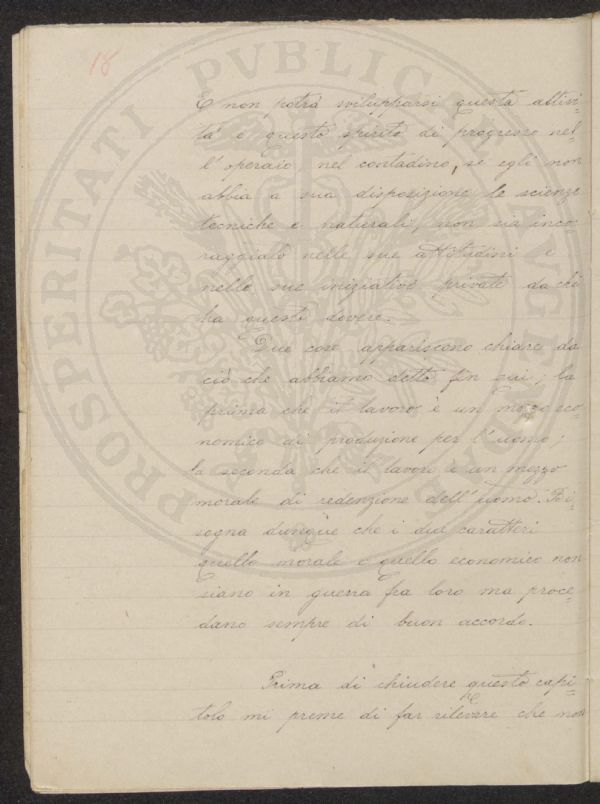 18
E non potrà svilupparsi questa attivi-
tà e questo spirito di progresso nel-
l'operaio, nel contadino, se egli non
abbia a sua disposizione le scienze
tecniche e naturali, non sia inco
raggiato nelle sue attitudini e
nelle sue iniziative private da chi
ha questi dovere.
Due cose appariscono chiare da
ciò che abbiamo detto fin qui; la
prima che il lavoro è un mezzo eco-
nomico di produzione per l'uomo;
la seconda che il lavoro è un mezzo
morale di redenzione dell'uomo. Bi-
sogna dunque che i due caratteri
quello morale e quello economico non
siano in guerra fra loro ma proce-
dano sempre di buon accordo.
Prima di chiudere questo capi-
tolo mi preme di far rilevare che non
PROSPERITATI PVBLICAE AVGENDAE